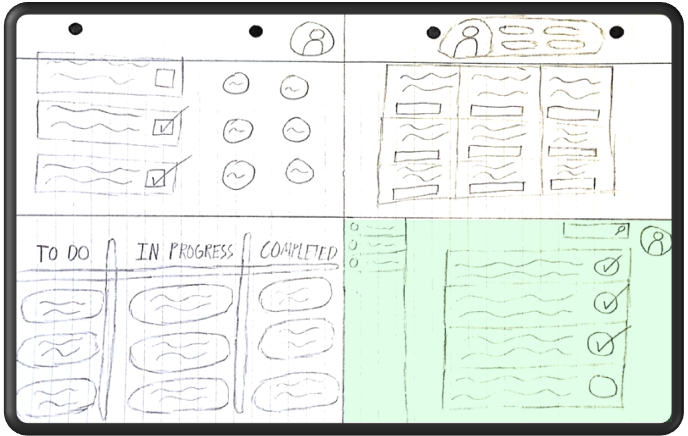 TO DO IN PROGRESS COMPLETED